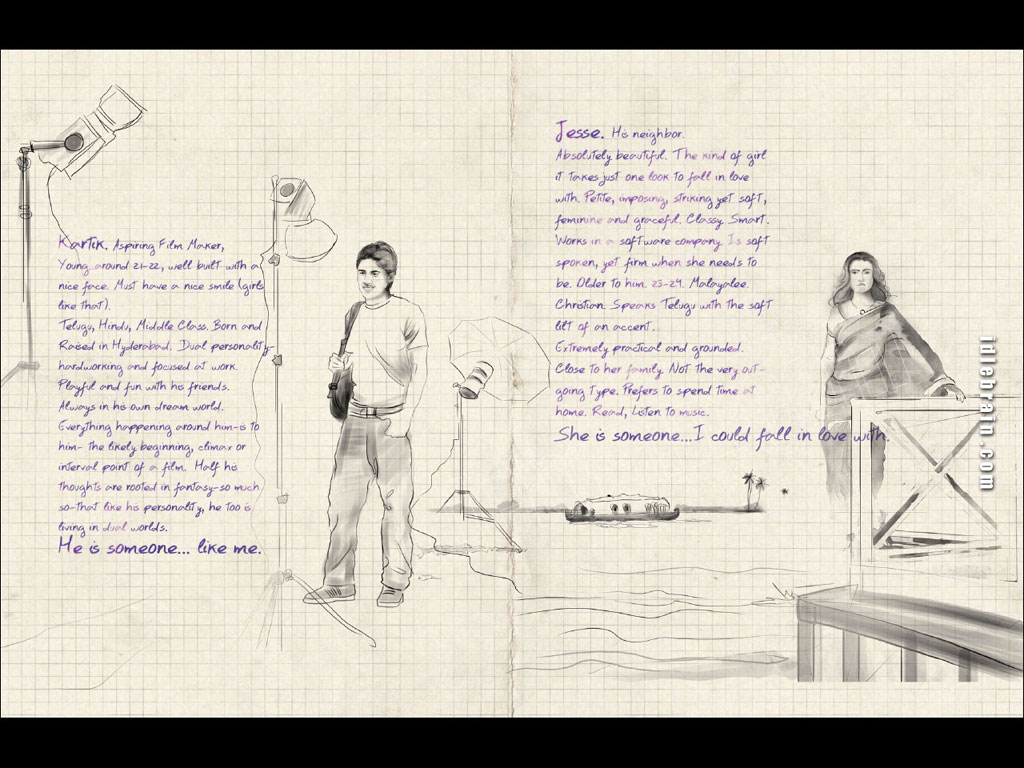 Kartik. Aspiring Film Maker,
Young around 21-22, well built with a
nice face. Must have a nice smile (girls
like that).
Telugu, Hindu, Middle Class. Born and
Raised in Hyderabad. Dual personality-
hardworking and focused at work.
Playful and fun with his friends.
Always in his own dream world.
Everything happening around him-is to
him- the likely beginning, climax or
interval point of a film. Half his
thoughts are rooted in fantasy-so much
so-that like his personality, he too is
living in dual worlds.
He is someone... like me.
Jesse. His neighbor.
Absolutely beautiful. The kind of girl
it takes just one look to fall in love
with. Petite, imposing, striking yet soft,
feminine and graceful. Classy. Smart.
Works in a software company. Is soft
spoken, yet firm when she needs to
be. Older to him. 23-24. Malayalee.
Christian. Speaks Telugu with the soft
lilt of an accent.
Extremely practical and grounded.
Close to her family. Not the very out-
going type. Prefers to spend time at
home. Read, Listen to music.
She is someone...I could fall in love with.
idlebrain.com